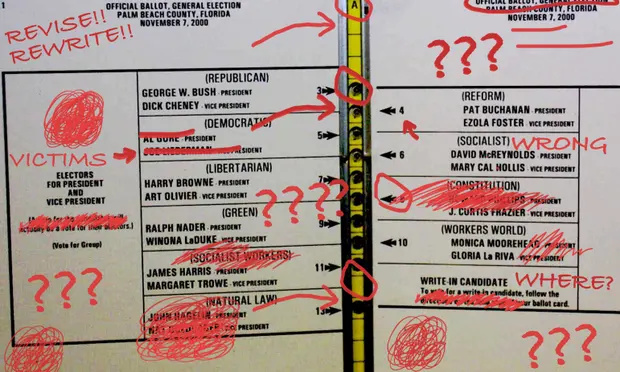 1
OFFICIAL BALLOT, GENERAL ELECTION
PALM BEACH COUNTY, FLORIDA
NOVEMBER 7, 2000
REVISE!!
REWRITE!!
A
OFFICIAL BALLOT, GENERAL ELECTION
PALM BEACH COUNTY, FLORIDA
NOVEMBER 7, 2000
???
(REPUBLICAN)
GEORGE W. BUSH PRESIDENT
DICK CHENEY VICE PRESIDENT
3
(DEMOCRATIC)
AL GORE PRESIDENT
JOE LIEBERMAN
5
(LIBERTARIAN)
HARRY BROWNE PRESIDENT
ART OLIVIER VICE PRESIDENT
7
(GREEN)
RALPH NADER PRESIDENT
WINONA LaDUKE VICE PRESIDENT
9
(SOCIALIST WORKERS)
JAMES HARRIS PRESIDENT
MARGARET TROWE VICE PRESIDENT
11
(NATURAL LAW)
JOHN HAGELIN PRESIDENT
VICE PRESIDENT
13
VICTIMS
ELECTORS
FOR PRESIDENT
AND
VICE PRESIDENT
actually be a vote for their electors.)
(Vote for Group)
???
????
(REFORM)
4
PAT BUCHANAN PRESIDENT
EZOLA FOSTER VICE PRESIDENT
(SOCIALIST)
WRONG
6
DAVID McREYNOLDS PRESIDENT
MARY CAL HOLLIS VICE PRESIDENT
(CONSTITUTION)
8
PHILLIPS PRESIDENT
J. CURTIS FRAZIER VICE PRESIDENT
(WORKERS WORLD)
10
MONICA MOOREHEAD PRESIDENT
GLORIA La RIVA VICE PRESIDENT
WHERE?
WRITE-IN CANDIDATE
To vote for a write-in candidate, follow the
your ballot card.
???